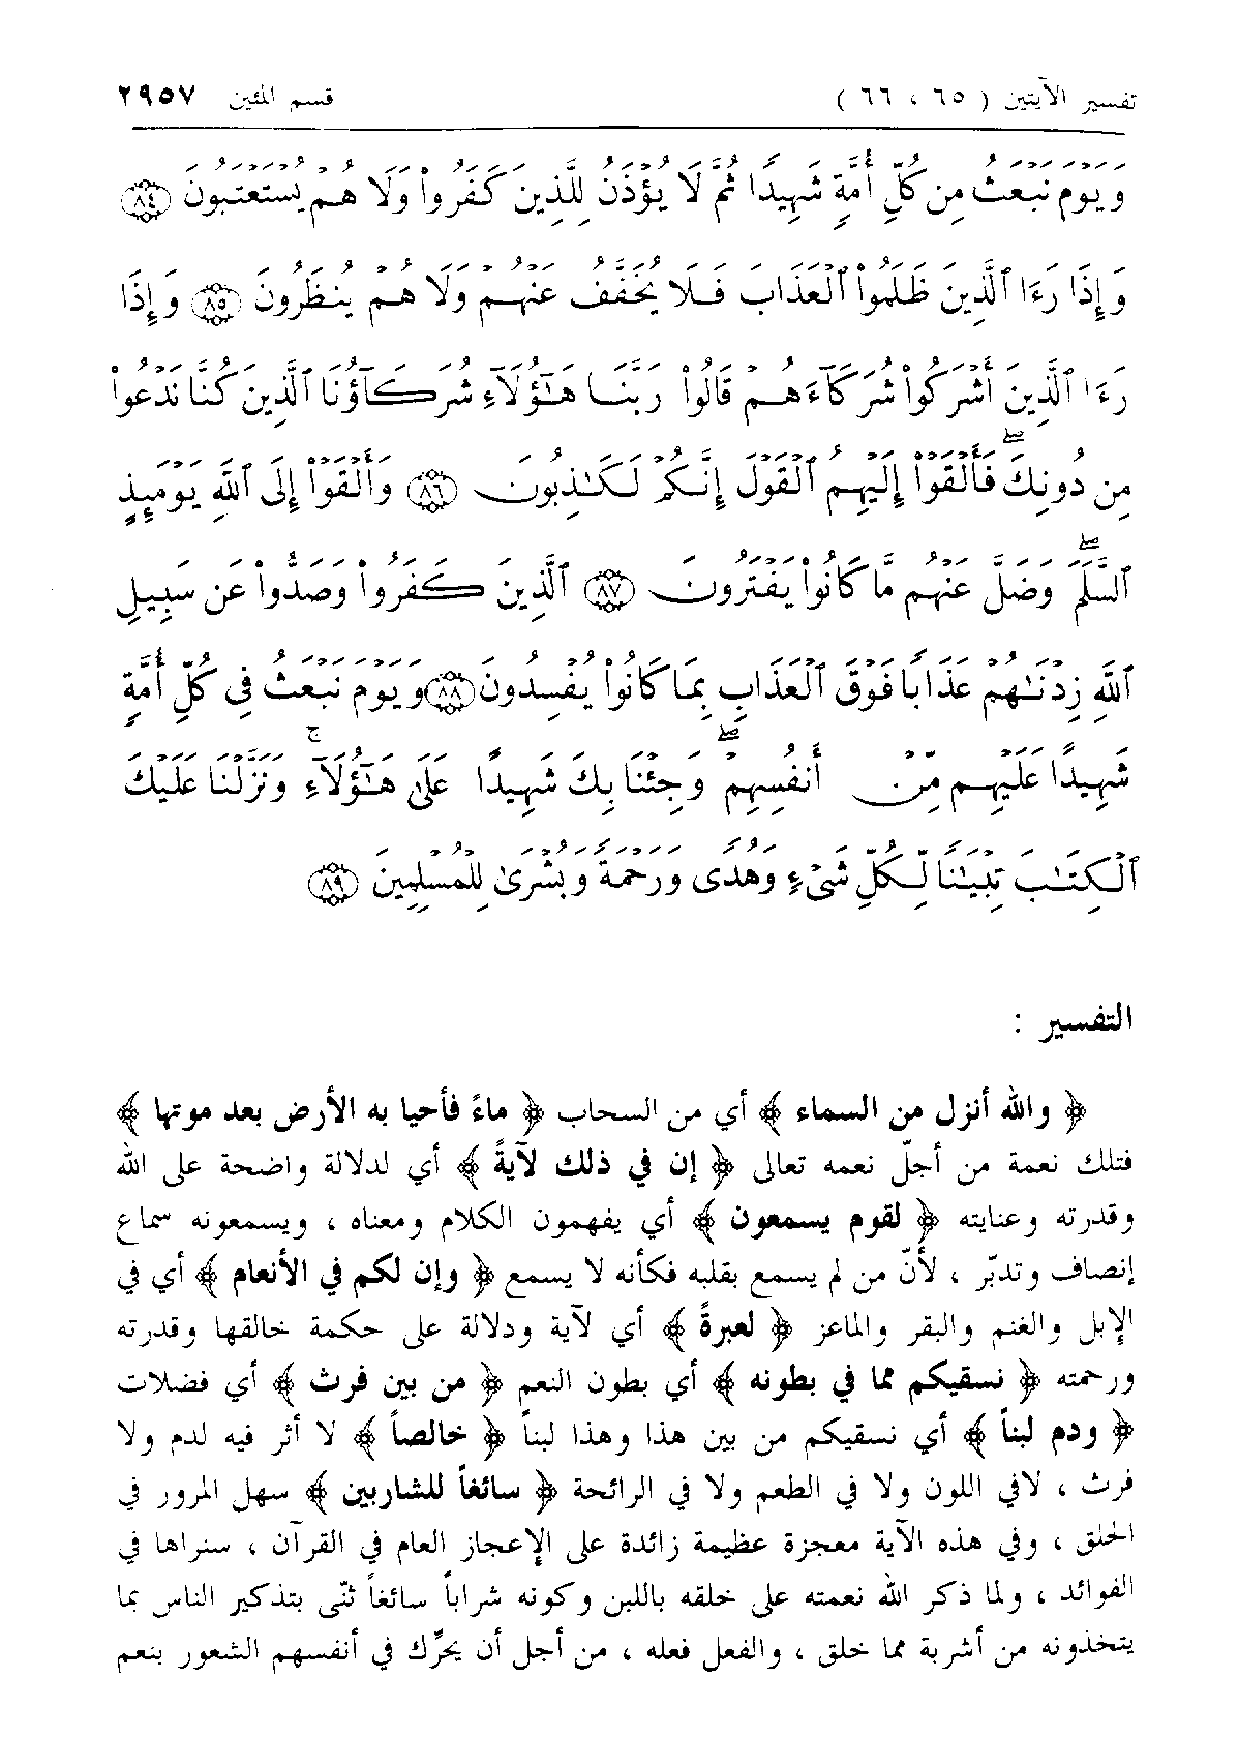 تفسير الآيتين ( ٦٥ ، ٦٦ )
قسم المئين ٢٩٥٧
وَيَوْمَ نَبْعَثُ مِن كُلِّ أُمَّةٍ شَهِيدًا ثُمَّ لَا يُؤْذَنُ لِلَّذِينَ كَفَرُوا۟ وَلَا هُمْ يُسْتَعْتَبُونَ ﴿٨٤﴾
وَإِذَا رَءَا ٱلَّذِينَ ظَلَمُوا۟ ٱلْعَذَابَ فَلَا يُخَفَّفُ عَنْهُمْ وَلَا هُمْ يُنظَرُونَ ﴿٨٥﴾ وَإِذَا
رَءَا ٱلَّذِينَ أَشْرَكُوا۟ شُرَكَآءَهُمْ قَالُوا۟ رَبَّنَا هَٰٓؤُلَآءِ شُرَكَآؤُنَا ٱلَّذِينَ كُنَّا نَدْعُوا۟
مِن دُونِكَ ۖ فَأَلْقَوْا۟ إِلَيْهِمُ ٱلْقَوْلَ إِنَّكُمْ لَكَٰذِبُونَ ﴿٨٦﴾ وَأَلْقَوْا۟ إِلَى ٱللَّهِ يَوْمَئِذٍ
ٱلسَّلَمَ ۖ وَضَلَّ عَنْهُم مَّا كَانُوا۟ يَفْتَرُونَ ﴿٨٧﴾ ٱلَّذِينَ كَفَرُوا۟ وَصَدُّوا۟ عَن سَبِيلِ
ٱللَّهِ زِدْنَٰهُمْ عَذَابًا فَوْقَ ٱلْعَذَابِ بِمَا كَانُوا۟ يُفْسِدُونَ ﴿٨٨﴾ وَيَوْمَ نَبْعَثُ فِى كُلِّ أُمَّةٍ
شَهِيدًا عَلَيْهِم مِّنْ أَنفُسِهِمْ ۖ وَجِئْنَا بِكَ شَهِيدًا عَلَىٰ هَٰٓؤُلَآءِ ۚ وَنَزَّلْنَا عَلَيْكَ
ٱلْكِتَٰبَ تِبْيَٰنًا لِّكُلِّ شَىْءٍ وَهُدًى وَرَحْمَةً وَبُشْرَىٰ لِلْمُسْلِمِينَ ﴿٨٩﴾
التفسير :
﴿ والله أنزل من السماء ﴾ أي من السحاب ﴿ ماءً فأحيا به الأرض بعد موتها ﴾
فتلك نعمة من أجلّ نعمه تعالى ﴿ إن في ذلك لآيةً ﴾ أي لدلالة واضحة على الله
وقدرته وعنايته ﴿ لقوم يسمعون ﴾ أي يفهمون الكلام ومعناه ، ويسمعونه سماع
إنصاف وتدبّر ، لأنّ من لم يسمع بقلبه فكأنه لا يسمع ﴿ وإن لكم في الأنعام ﴾ أي في
الإبل والغنم والبقر والماعز ﴿ لعبرةً ﴾ أي لآية ودلالة على حكمة خالقها وقدرته
ورحمته ﴿ نسقيكم مما في بطونه ﴾ أي بطون النعم ﴿ من بين فرث ﴾ أي فضلات
﴿ ودم لبناً ﴾ أي نسقيكم من بين هذا وهذا لبناً ﴿ خالصاً ﴾ لا أثر فيه لدم ولا
فرث ، لافي اللون ولا في الطعم ولا في الرائحة ﴿ سائغاً للشاربين ﴾ سهل المرور في
الحلق ، وفي هذه الآية معجزة عظيمة زائدة على الإعجاز العام في القرآن ، سنراها في
الفوائد ، ولما ذكر الله نعمته على خلقه باللبن وكونه شراباً سائغاً ثنّى بتذكير الناس بما
يتخذونه من أشربة مما خلق ، والفعل فعله ، من أجل أن يحرِّك في أنفسهم الشعور بنعم